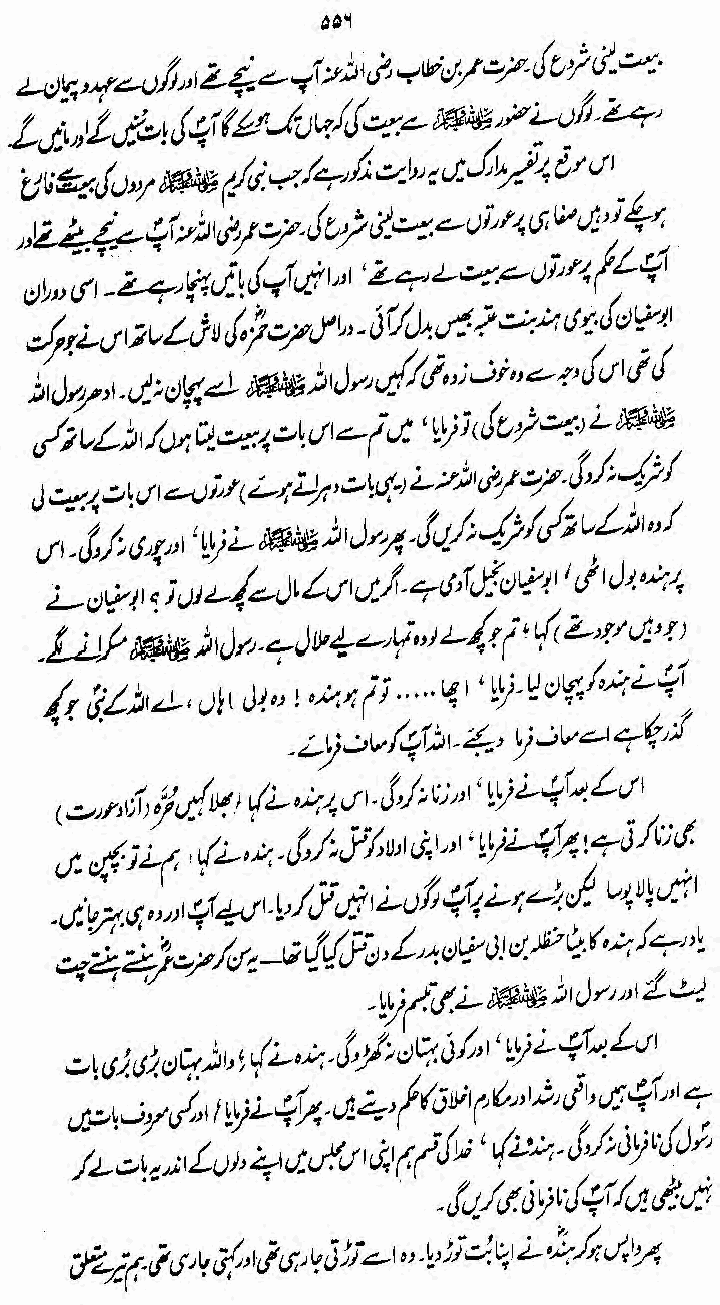 ۵۵۶
بیعت لینی شروع کی۔ حضرت عمر بن خطاب رضی اللہ عنہ آپ سے نیچے تھے اور لوگوں سے عہد و پیمان لے
رہے تھے۔ لوگوں نے حضور ﷺ سے بیعت کی کہ جہاں تک ہو سکے گا آپؐ کی بات سُنیں گے اور مانیں گے۔
اس موقع پر تفسیر مدارک میں یہ روایت مذکور ہے کہ جب نبی کریم ﷺ مردوں کی بیعت سے فارغ
ہو چکے تو وہیں صفا ہی پر عورتوں سے بیعت لینی شروع کی۔ حضرت عمر رضی اللہ عنہ آپؐ سے نیچے بیٹھے تھے اور
آپؐ کے حکم پر عورتوں سے بیعت لے رہے تھے ‘ اور انہیں آپ کی باتیں پہنچا رہے تھے۔ اسی دوران
ابوسفیان کی بیوی ہند بنت عتبہ بھیس بدل کر آئی۔ دراصل حضرت حمزہؓ کی لاش کے ساتھ اس نے جو حرکت
کی تھی اس کی وجہ سے وہ خوف زدہ تھی کہ کہیں رسول اللہ ﷺ اسے پہچان نہ لیں۔ ادھر رسول اللہ
ﷺ نے (بیعت شروع کی) تو فرمایا ‘ میں تم سے اس بات پر بیعت لیتا ہوں کہ اللہ کے ساتھ کسی
کو شریک نہ کرو گی۔ حضرت عمر رضی اللہ عنہ نے (یہی بات دہراتے ہوئے) عورتوں سے اس بات پر بیعت لی
کہ وہ اللہ کے ساتھ کسی کو شریک نہ کریں گی۔ پھر رسول اللہ ﷺ نے فرمایا ‘ اور چوری نہ کرو گی۔ اس
پر ہندہ بول اٹھی ‘ ابوسفیان بخیل آدمی ہے۔ اگر میں اس کے مال سے کچھ لے لوں تو ؟ ابوسفیان نے
(جو وہیں موجود تھے) کہا ‘ تم جو کچھ لے لو وہ تمہارے لیے حلال ہے۔ رسول اللہ ﷺ مسکرانے لگے۔
آپؐ نے ہندہ کو پہچان لیا۔ فرمایا ‘ اچھا ..... تو تم ہو ہندہ ! وہ بولی ‘ ہاں ، اے اللہ کے نبیؐ جو کچھ
گذر چکا ہے اسے معاف فرما دیجئے۔ اللہ آپ کو معاف فرمائے۔
اس کے بعد آپؐ نے فرمایا ‘ اور زنا نہ کرو گی۔ اس پر ہندہ نے کہا ‘ بھلا کہیں حُرّہ (آزاد عورت)
بھی زنا کرتی ہے! پھر آپؐ نے فرمایا ‘ اور اپنی اولاد کو قتل نہ کرو گی۔ ہندہ نے کہا: ہم نے تو بچپن میں
انہیں پالا پوسا لیکن بڑے ہونے پر آپؐ لوگوں نے انہیں قتل کر دیا۔ اس لیے آپؐ اور وہ ہی بہتر جانیں۔
یاد رہے کہ ہندہ کا بیٹا حنظلہ بن ابی سفیان بدر کے دن قتل کیا گیا تھا — یہ سن کر حضرت عمرؓ ہنستے ہنستے چت
لیٹ گئے اور رسول اللہ ﷺ نے بھی تبسم فرمایا۔
اس کے بعد آپؐ نے فرمایا ‘ اور کوئی بہتان نہ گھڑو گی۔ ہندہ نے کہا ‘ واللہ بہتان بڑی بُری بات
ہے اور آپؐ ہمیں واقعی رشد اور مکارم اخلاق کا حکم دیتے ہیں۔ پھر آپؐ نے فرمایا ‘ اور کسی معروف بات میں
رسولؐ کی نافرمانی نہ کرو گی۔ ہندہؓ نے کہا ‘ خدا کی قسم ہم اپنی اس مجلس میں اپنے دلوں کے اندر یہ بات لے کر
نہیں بیٹھی ہیں کہ آپؐ کی نافرمانی بھی کریں گی۔
پھر واپس ہو کر ہندہؓ نے اپنا بُت توڑ دیا۔ وہ اسے توڑتی جا رہی تھی اور کہتی جا رہی تھی۔ ہم تیرے متعلق